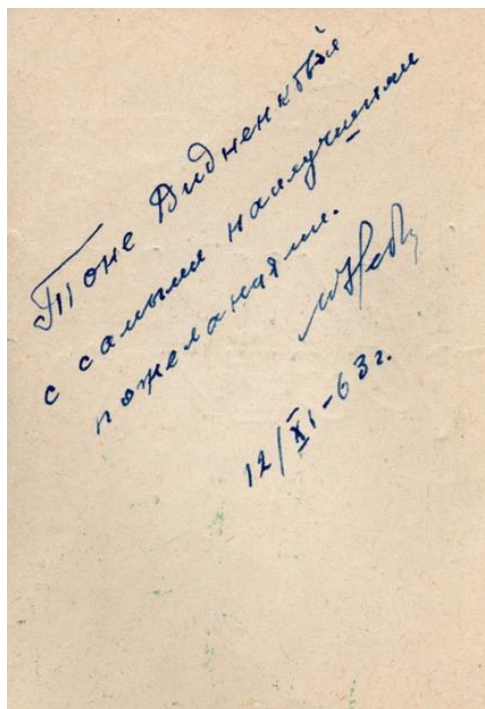 Тоне Дидненковой
с самыми наилучшими
пожеланиями.
12/XI-63г.